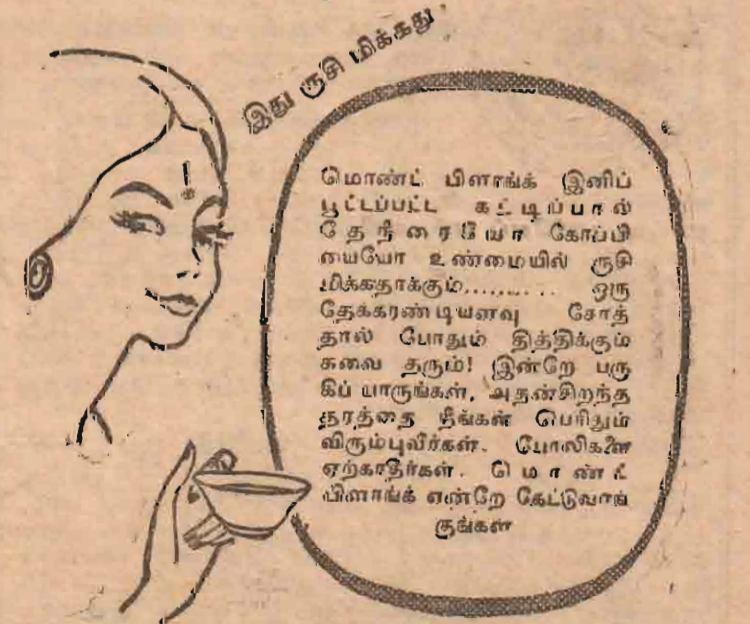 இது ருசி மிக்கது'
மொண்ட் பிளாங்க் இனிப்
பூட்டப்பட்ட கட்டிப்பால்
தேநீரையோ கோப்பி
யையோ உண்மையில் ருசி
மிக்கதாக்கும்.......... ஒரு
தேக்கரண்டியளவு சேர்த்
தால் போதும் தித்திக்கும்
சுவை தரும்! இன்றே பரு
கிப் பாருங்கள், அதன்சிறந்த
தரத்தை நீங்கள் பெரிதும்
விரும்புவீர்கள். போலிகளை
ஏற்காதீர்கள். மொண்ட்
பிளாங்க் என்றே கேட்டுவாங்
குங்கள்